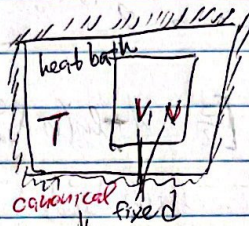 heat bath
T
V, N
canonical
fixed